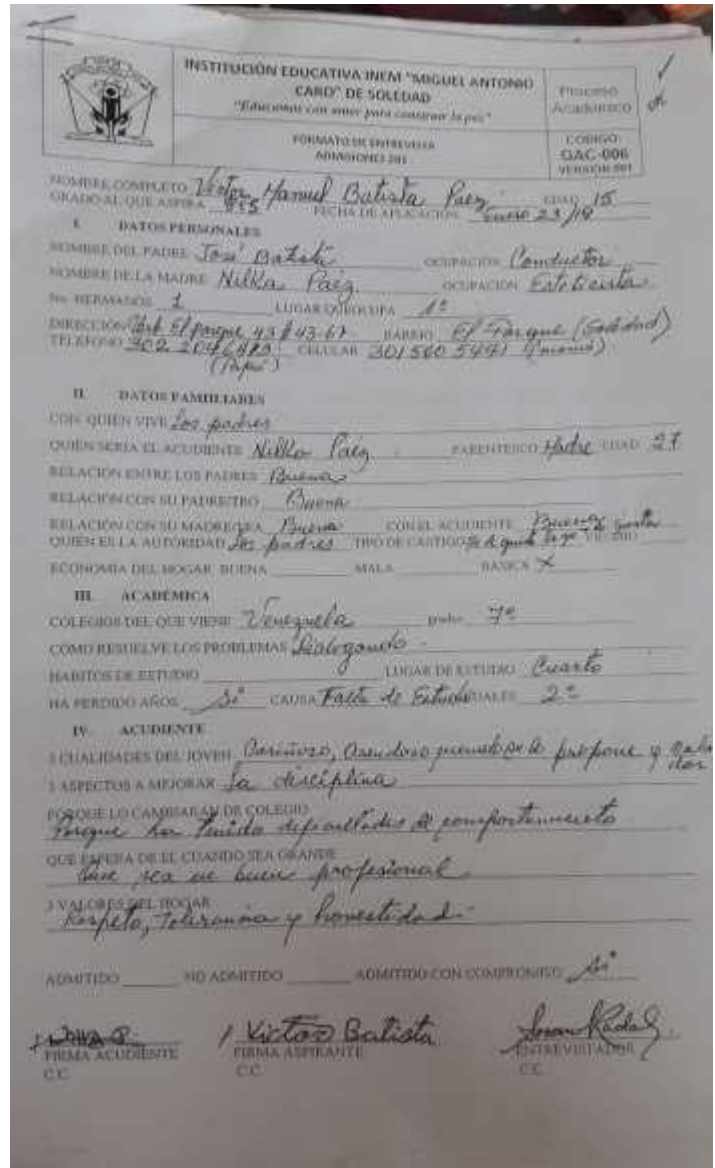 INSTITUCIÓN EDUCATIVA INEM "MIGUEL ANTONIO
CARO" DE SOLEDAD
"Educamos con amor para construir la paz"
Proceso
Académico
FORMATO DE ENTREVISTA
ADMISIONES
CODIGO:
GAC-006
VERSIÓN 001
NOMBRE COMPLETO Victor Manuel Batista Paez EDAD 15
GRADO AL QUE ASPIRA FECHA DE APLICACIÓN Enero 23/19
I. DATOS PERSONALES
NOMBRE DEL PADRE José Batista OCUPACIÓN Conductor
NOMBRE DE LA MADRE Nilka Paéz OCUPACIÓN Esteticista
No. HERMANOS 1 LUGAR QUE OCUPA 1º
DIRECCIÓN Urb. El parque 43 # 43-67 BARRIO El Parque (Soledad)
TELÉFONO 302 CELULAR 301560 5441 (mamá)
(Papá)
II. DATOS FAMILIARES
CON QUIEN VIVE Los padres
QUIEN SERIA EL ACUDIENTE Nilka Paéz PARENTESCO Madre EDAD
RELACIÓN ENTRE LOS PADRES Buena
RELACIÓN CON SU PADRE/TRO Buena
RELACIÓN CON SU MADRE/TRA Buena CON EL ACUDIENTE Buena
QUIEN ES LA AUTORIDAD Los padres TIPO DE CASTIGO Se le quita lo que le gusta
ECONOMIA DEL HOGAR BUENA MALA BASICA X
III. ACADÉMICA
COLEGIOS DEL QUE VIENE Venezuela 7º
COMO RESUELVE LOS PROBLEMAS Dialogando
HABITOS DE ESTUDIO LUGAR DE ESTUDIO Cuarto
HA PERDIDO AÑOS Si CAUSA Falta de Estudio CUALES 2º
IV. ACUDIENTE
3 CUALIDADES DEL JOVEN Cariñoso, se le propone y
3 ASPECTOS A MEJORAR La disciplina
PORQUE LO CAMBIARAN DE COLEGIO
Porque ha tenido dificultades de comportamiento
QUE ESPERA DE EL CUANDO SEA GRANDE
Que sea un buen profesional
3 VALORES DEL HOGAR
Respeto, Tolerancia y honestidad.
ADMITIDO NO ADMITIDO ADMITIDO CON COMPROMISO Si
Victor Batista
FIRMA ACUDIENTE FIRMA ASPIRANTE ENTREVISTADOR
C.C. C.C. C.C.